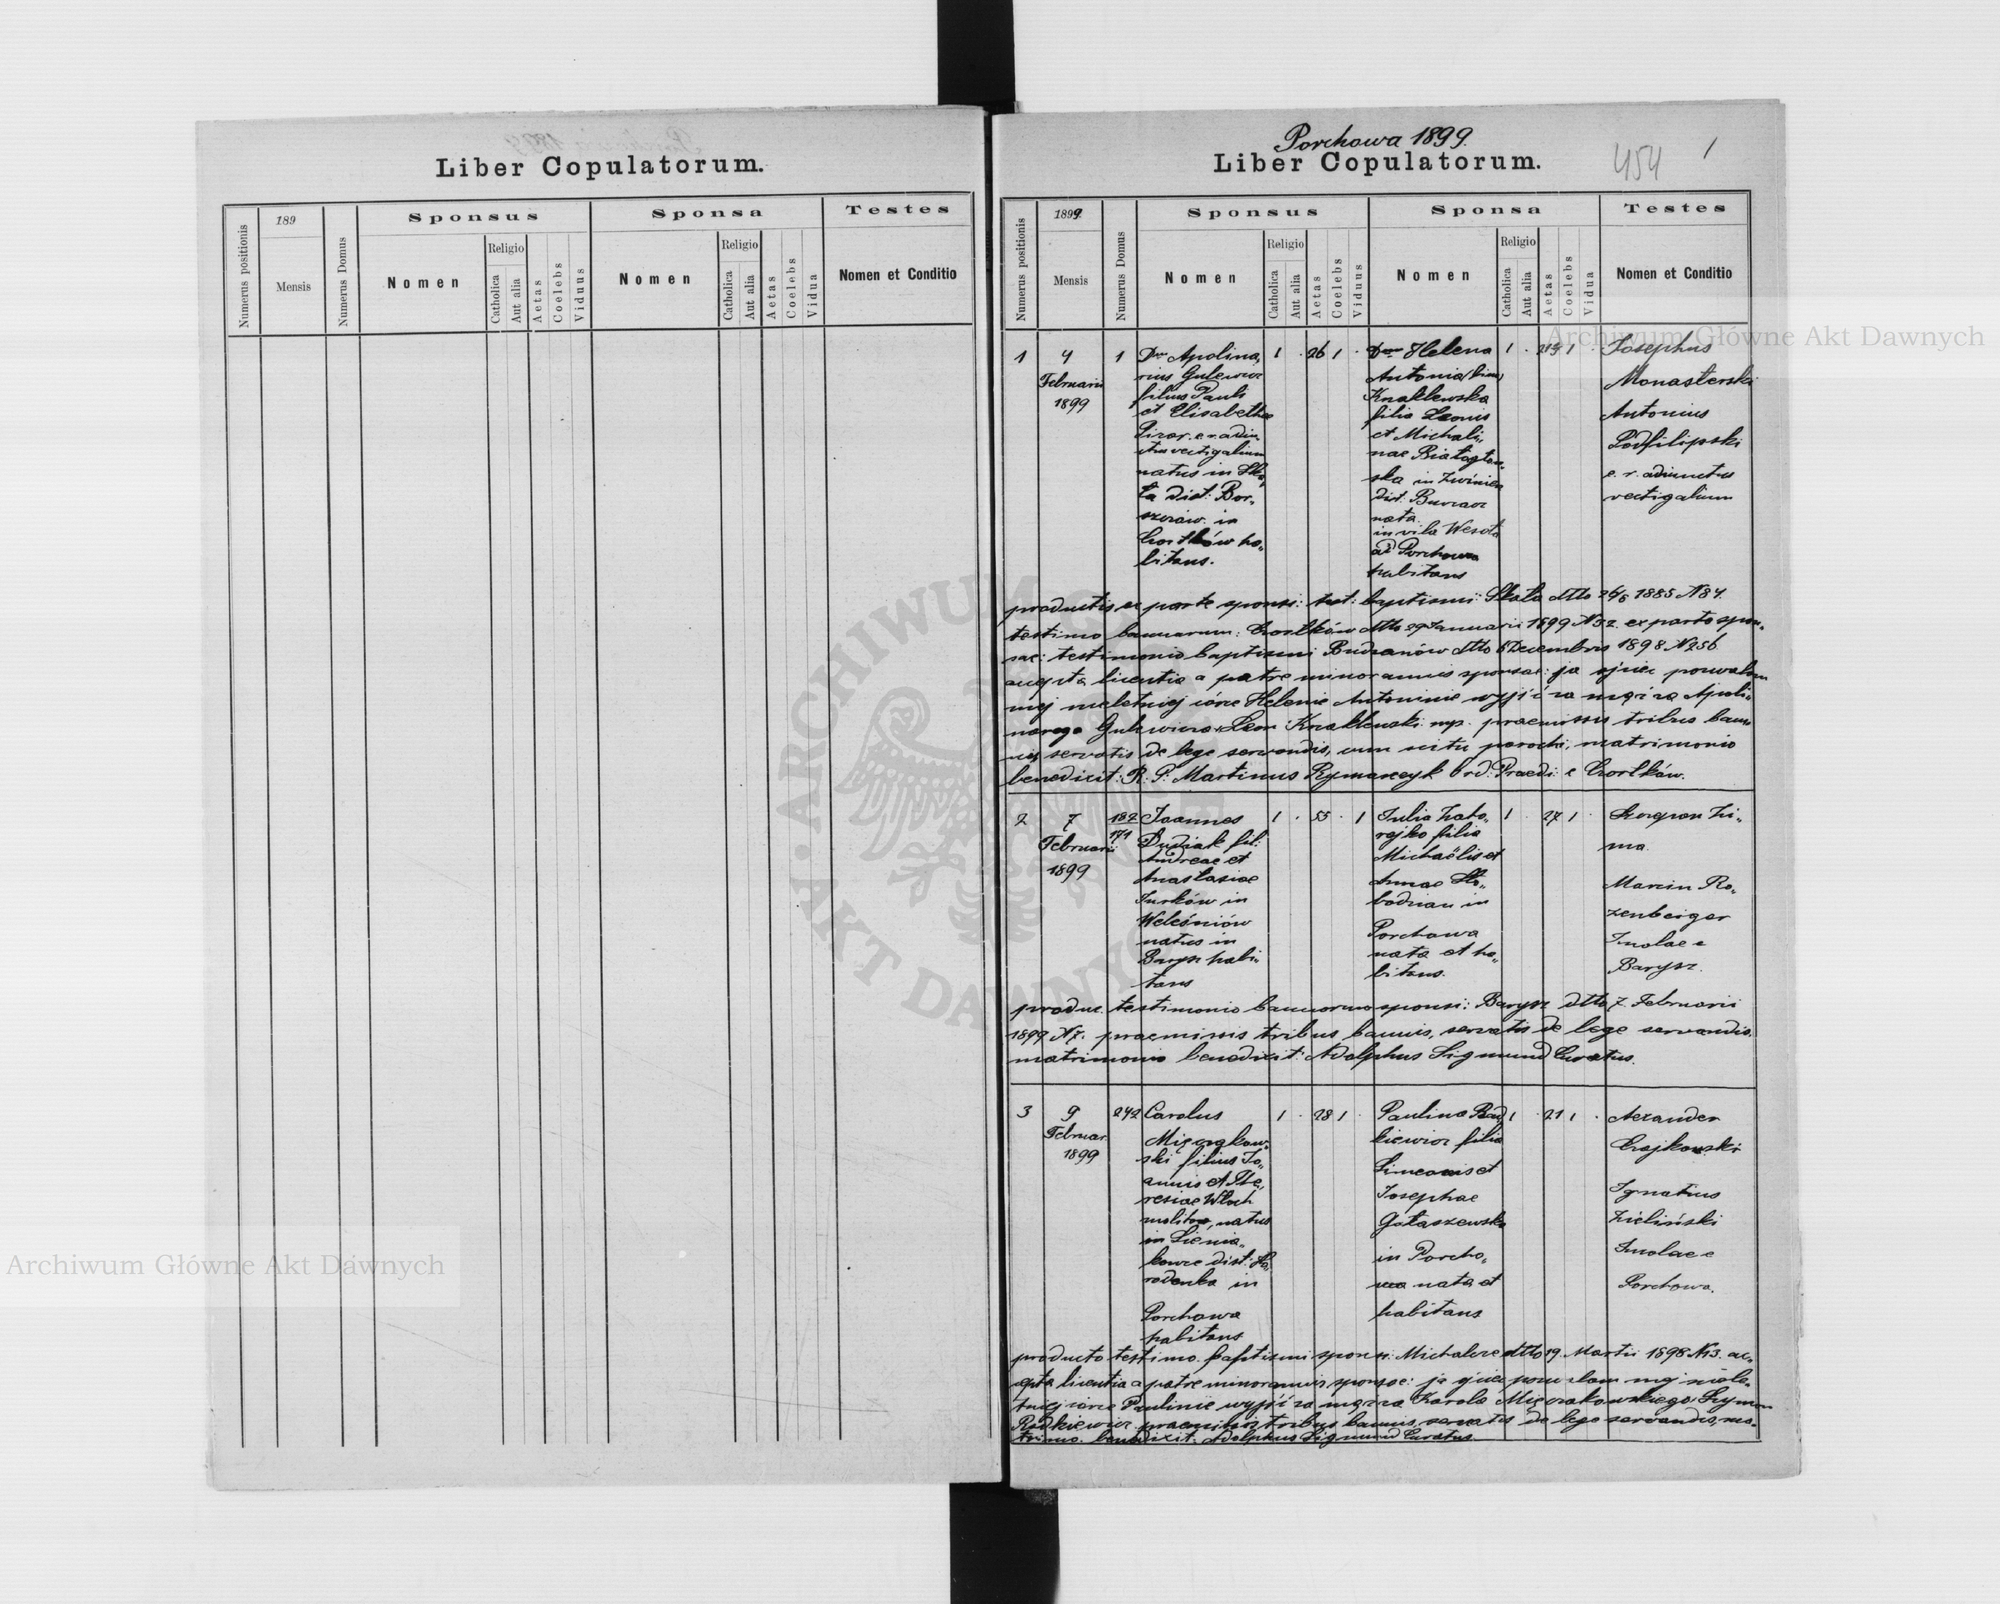 Liber Copulatorum.
Numerus positionis
189
Mensis
Numerus Domus
Sponsus
Nomen
Religio
Catholica
Aut alia
Aetas
Coelebs
Viduus
Sponsa
Nomen
Religio
Catholica
Aut alia
Aetas
Coelebs
Vidua
Testes
Nomen et Conditio
Porchowa 1899.
Liber Copulatorum.
454
1
Numerus positionis
1899
Mensis
Numerus Domus
Sponsus
Nomen
Religio
Catholica
Aut alia
Aetas
Coelebs
Viduus
Sponsa
Nomen
Religio
Catholica
Aut alia
Aetas
Coelebs
Vidua
Testes
Nomen et Conditio
1
4
Februarii
1899
1
Apolina,
rius Gulewicz
filius Pauli
et Elisabethae
natus in Ska,
ła dist: Bor,
szczów. in
Czortków ha,
bitans.
1 . 26 1 .
Helena
Antonia
Knaklewska
filia Leonis
et Michali,
nae
ska in
dist: Buczacz
nata
in vila Wesoła
ad Porchowa
habitans
1 . 1 .
Josephus
Monasterski
Antonius
Podfilipski
c. r. adiunctus
vectigalium
productis ex parte sponsi: test: baptismi: Skała dtto 1885 N 84
testimo bannorum: Czortków dtto 29 Januarii 1899 N 32. ex parte spon,
sae: testimonio baptismi Budzanów dtto 6 Decembris 1898 N 256
licentia a patre minorennis sponsae: ja ojciec pozwalam
mej nieletniej córce Helenie Antoninie wyjść za mąż za Apoli,
narego Gulewicza: Leon Knaklewski mp. praemissis tribus ban
nis servatis de lege servandis, cum scitu parochi, matrimonio
benedixit: R. P. Martinus Rymarczyk Ord: Praedi: e Czortków.
2
7
Februarii
1899
182
171
Joannes
Dudiak fil:
Andreae et
Anastasiae
Jurków in
Weleśniów
natus in
Barysz habi,
tans
1 . 55 . 1
Julia Zato,
rejko filia
Michaëlis et
Annae Sło,
bodzian in
Porchowa
nata et ha,
bitans.
1 . 27 1 .
Zi,
ma.
Marcin Ro,
zenberger
Incolae e
Barysz.
produc. testimonio bannorum sponsi: Barysz dtto 7. Februarii
1899 N 7. praemissis tribus bannis, servatis de lege servandis.
matrimonio benedixit: Adolphus Sigmund Curatus.
3
9
Februar.
1899
242
Carolus
Mięczakow,
ski filius Jo,
annis et The,
resiae Włoch
molitor, natus
in Siemia,
kowce dist: Ho,
rodenka in
Porchowa
habitans
1 . 28 1 .
Paulina Rad,
kiewicz filia
Simeonis et
Josephae
Gołaszewska
in Porcho,
wa nata et
habitans
1 . 21 1 .
Alexander
Czajkowski
Ignatius
Zieliński
Incolae e
Porchowa.
producto testimo. baptismi sponsi: Michalcze dtto 19. Martii 1898 N 13. ac,
cepta licentia a patre minorennis sponsae: ja ojciec pozwalam mej niele,
tniej córce Paulinie wyjść za mąż za Karola Mięczakowskiego: Szymon
Radkiewicz. praemissis tribus bannis, servatis de lege servandis, ma,
trimo. benedixit: Adolphus Sigmund Curatus.
Archiwum Główne Akt Dawnych
Archiwum Główne Akt Dawnych